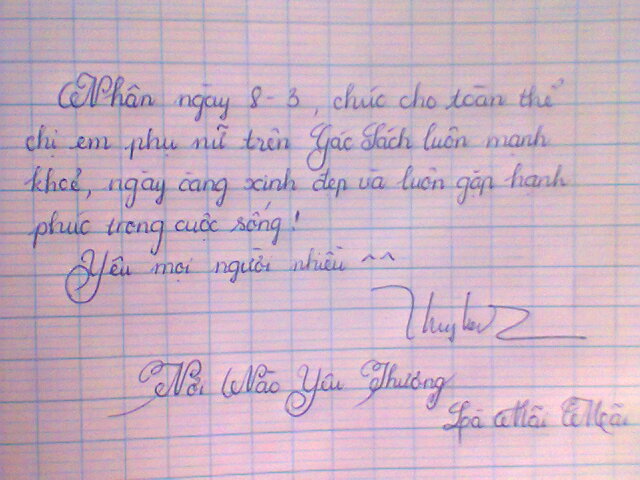 Nhân ngày 8-3, chúc cho toàn thể
chị em phụ nữ trên Gác Sách luôn mạnh
khoẻ, ngày càng xinh đẹp và luôn gặp hạnh
phúc trong cuộc sống!
Yêu mọi người nhiều ^^
Nơi Nào Yêu Thương
Là Mãi Mãi